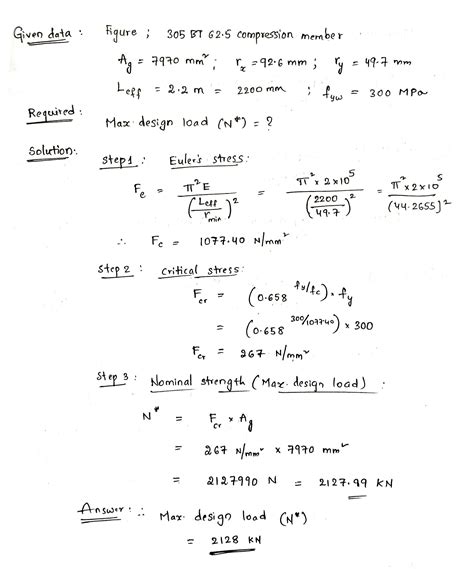 Given data : Figure ; 305 BT 62.5 compression member
Ag = 7970 mm² ; rx = 92.6 mm ; ry = 49.7 mm
Leff = 2.2 m = 2200 mm ; fyw = 300 MPa
Required : Max design load (N*) = ?
Solution:.
Step 1 : Euler's stress:
Fe = π²E / (Leff/rmin)² = π² x 2x10⁵ / (2200/49.7)² = π² x 2x10⁵ / (44.2655)²
∴ Fc = 1077.40 N/mm²
Step 2 : Critical stress:
Fcr = (0.658 ^ fy/fc) x fy
= (0.658 ^ 300/1077.40) x 300
Fcr = 267 N/mm²
Step 3 : Nominal strength (Max. design load) :
N* = Fcr x Ag
= 267 N/mm² x 7970 mm²
= 2127990 N = 2127.99 KN
Answer : ∴ Max. design load (N*)
= 2128 KN